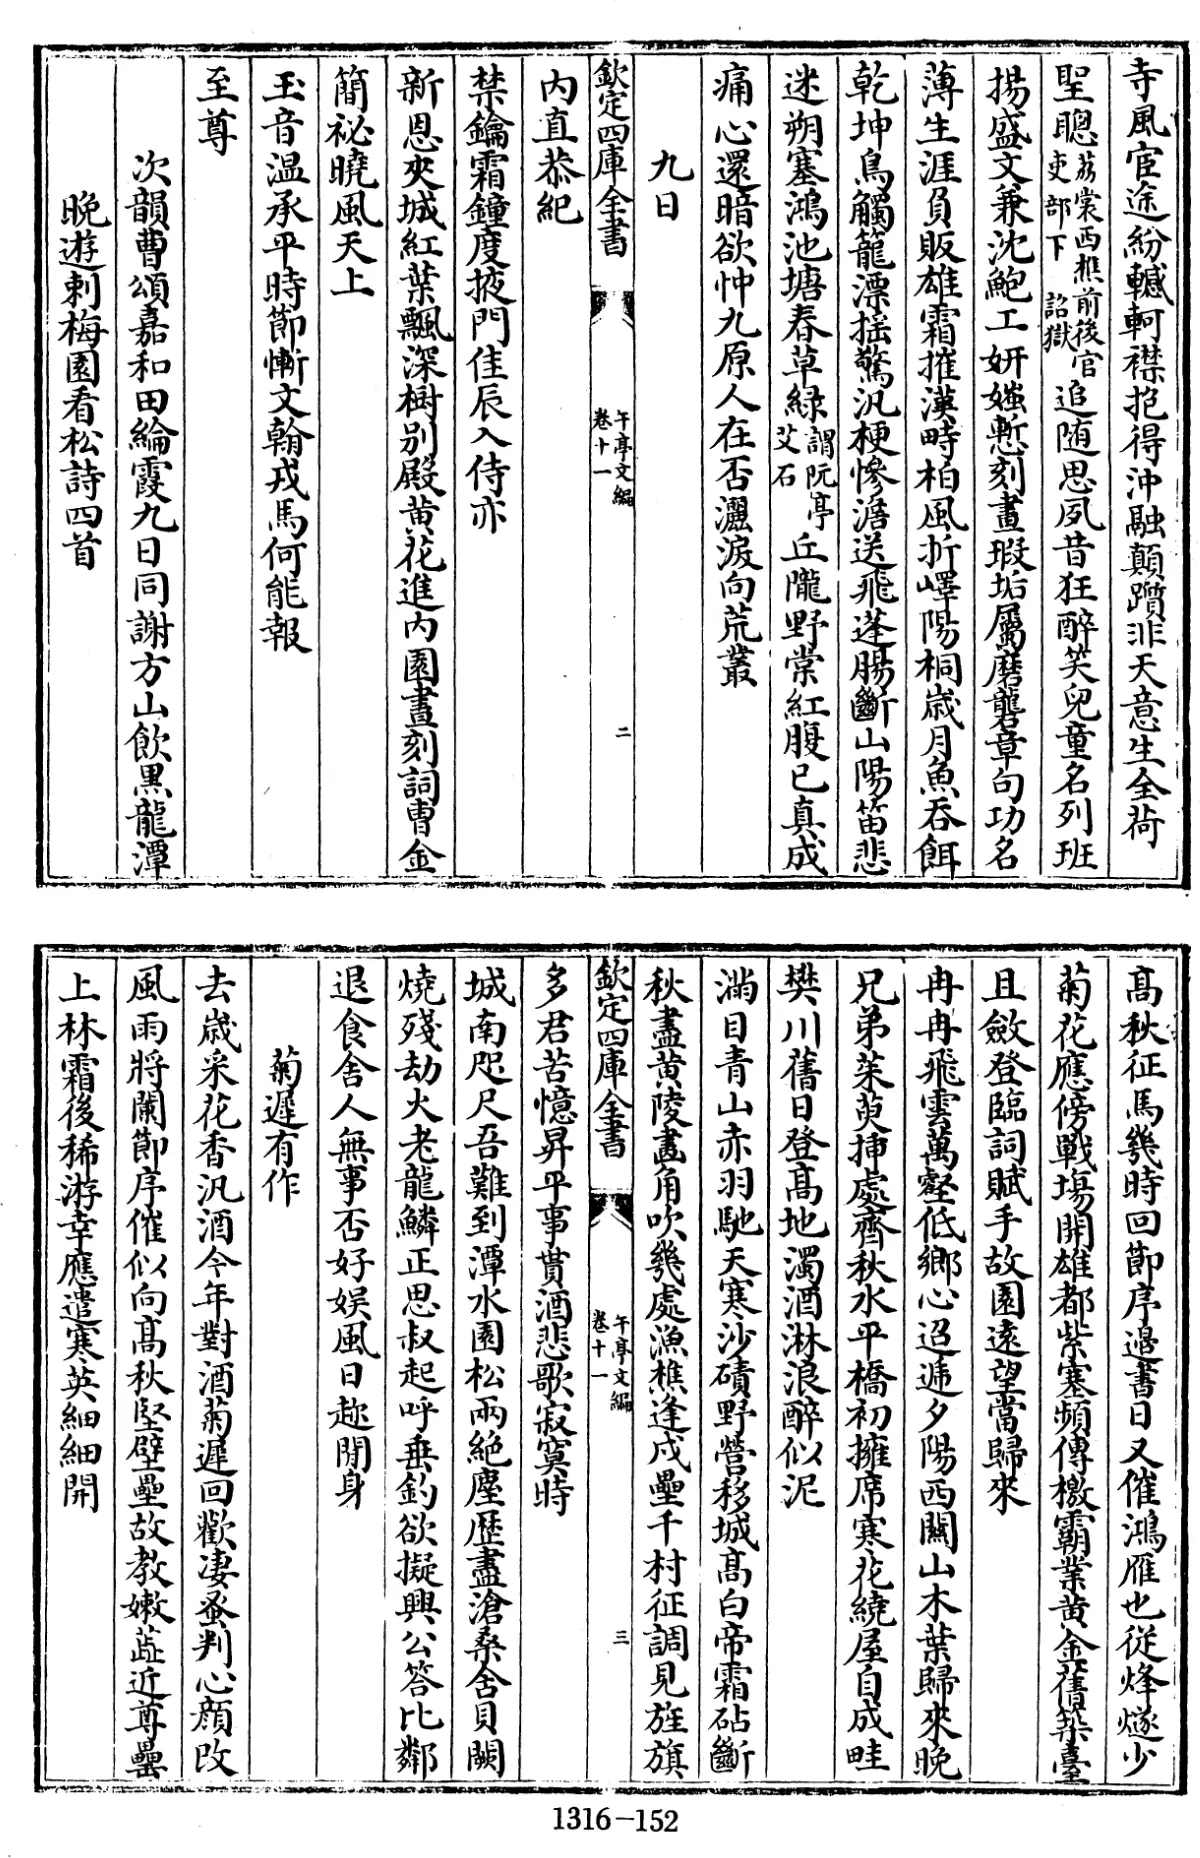 寺風宦途紛轗軻襟抱得沖融顛躓非天意生全荷
聖聰荔裳西樵前後官吏部下詔獄追随思夙昔狂醉笑兒童名列班
揚盛文兼沈鮑工妍媸慙刻畫瑕垢屬磨礱章句功名
薄生涯負販雄霜摧漢畤柏風折嶧陽桐歳月魚吞餌
乾坤鳥觸籠漂揺驚汎梗慘澹送飛蓬腸斷山陽笛悲
迷朔塞鴻池塘春草綠謂阮亭艾石丘隴野棠紅腹已真成
痛心還暗欲忡九原人在否灑淚向荒叢
九日
欽定四庫全書
午亭文編
卷十一
二
内直恭紀
禁鑰霜鐘度掖門佳辰入侍亦
新恩夾城紅葉飄深樹别殿黄花進内園晝刻詞曹金
簡祕曉風天上
玉音温承平時節慚文翰戎馬何能報
至尊
次韻曹頌嘉和田綸霞九日同謝方山飲黒龍潭
晩遊刺梅園看松詩四首
高秋征馬幾時回節序邊書日又催鴻雁也從烽燧少
菊花應傍戰場開雄都紫塞頻傳檄霸業黄金舊築臺
且斂登臨詞賦手故園遠望當歸來
冉冉飛雲萬壑低鄉心迢遞夕陽西闗山木葉歸來晩
兄弟茱萸揷處齊秋水平橋初擁席寒花繞屋自成畦
樊川舊日登高地濁酒淋浪醉似泥
滿目青山赤羽馳天寒沙磧野營移城高白帝霜砧斷
秋盡黄陵畫角吹幾處漁樵逢戍壘千村征調見旌旗
欽定四庫全書
午亭文編
卷十一
三
多君苦憶昇平事貰酒悲歌寂寞時
城南咫尺吾難到潭水園松兩絶塵歴盡滄桑舍貝闕
燒殘劫火老龍鱗正思叔起呼垂釣欲擬興公答比鄰
退食舍人無事否好娱風日趂閒身
菊遲有作
去歳采花香汎酒今年對酒菊遲回歡凄蚤判心顔改
風雨將闌節序催似向高秋堅壁壘故教嫩蘂近尊罍
上林霜後稀游幸應遣寒英細細開
1316-152